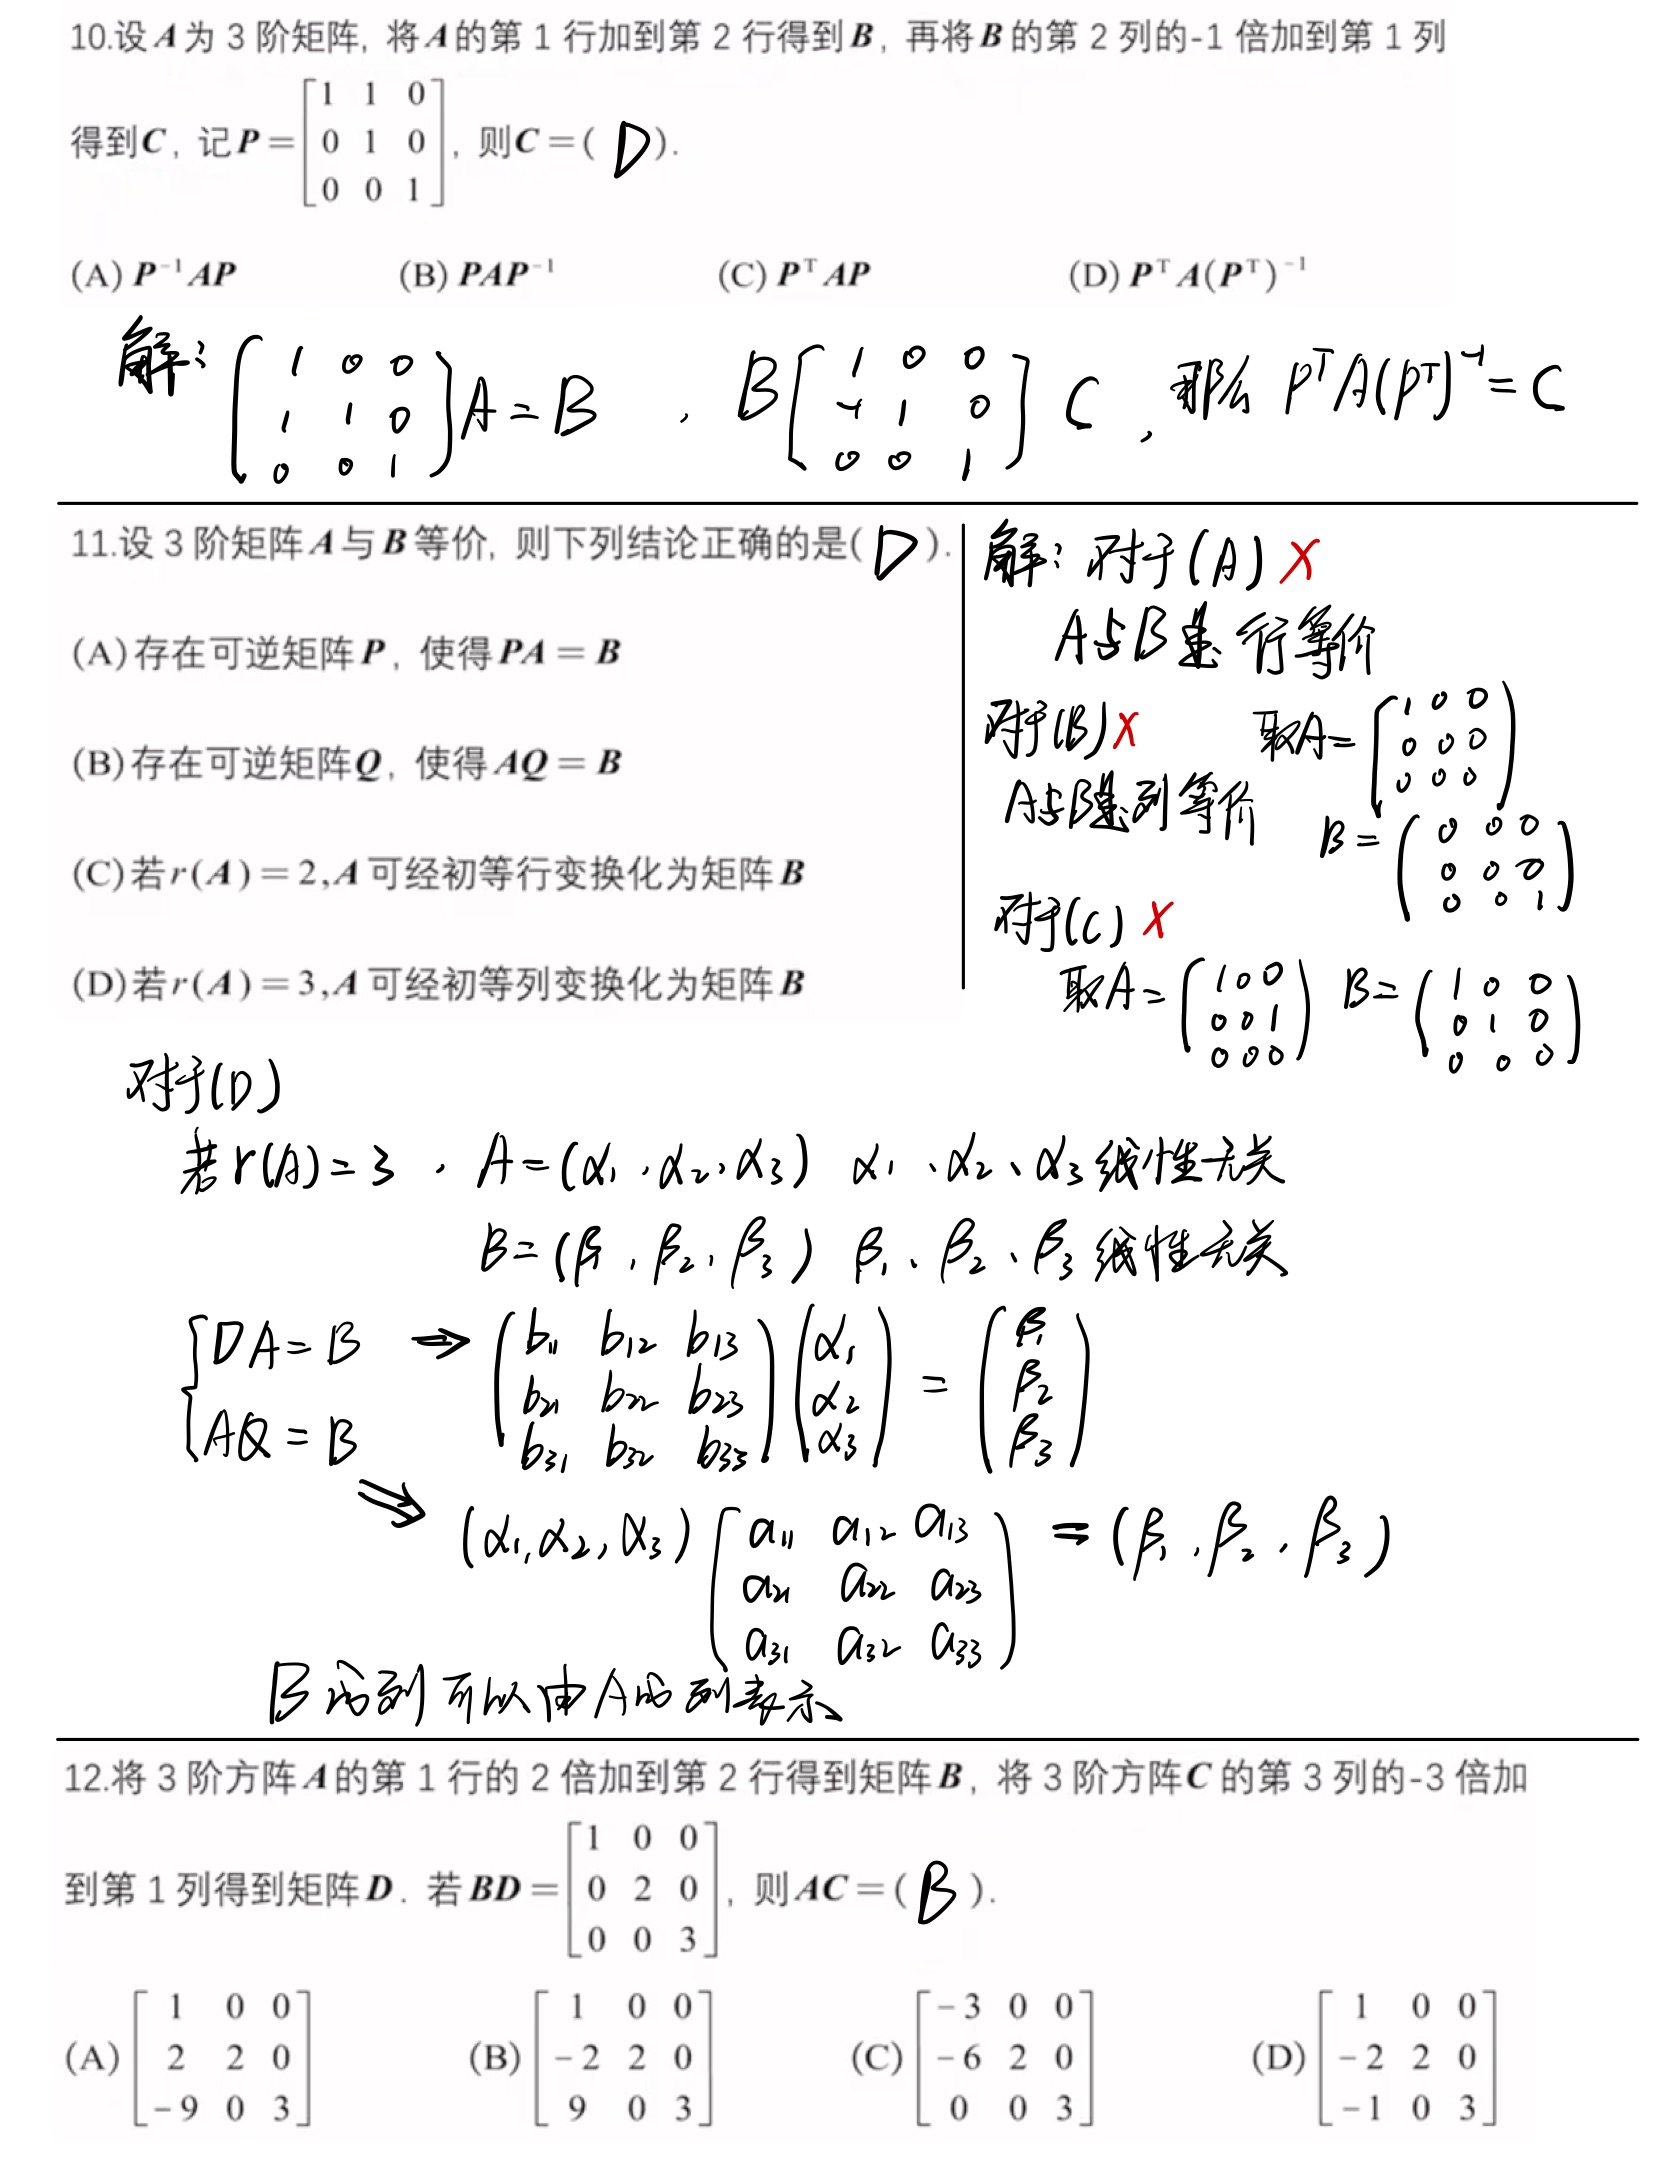 10.设A为 3 阶矩阵, 将A的第 1 行加到第 2 行得到B, 再将B的第 2 列的-1 倍加到第 1 列
得到C, 记P=[1 1 0; 0 1 0; 0 0 1], 则C=( D ).
(A) P⁻¹AP (B) PAP⁻¹ (C) PᵀAP (D) PᵀA(Pᵀ)⁻¹
解: (1 0 0; 1 1 0; 0 0 1)A=B , B[1 0 0; -1 1 0; 0 0 1] C , 那么 PᵀA(Pᵀ)⁻¹=C
11.设 3 阶矩阵A与B等价, 则下列结论正确的是( D ).
(A)存在可逆矩阵P, 使得PA=B
(B)存在可逆矩阵Q, 使得AQ=B
(C)若r(A)=2,A可经初等行变换化为矩阵B
(D)若r(A)=3,A可经初等列变换化为矩阵B
解: 对于(A) X
A与B是 行等价
对于(B) X 取A=(1 0 0; 0 0 0; 0 0 0)
A与B是列等价 B=(0 0 0; 0 0 0; 0 0 1)
对于(C) X
取A=(1 0 0; 0 0 1; 0 0 0) B=(1 0 0; 0 1 0; 0 0 0)
对于(D)
若r(A)=3 , A=(α₁,α₂,α₃) α₁、α₂、α₃线性无关
B=(β₁,β₂,β₃) β₁、β₂、β₃线性无关
{DA=B ⇒ (b₁₁ b₁₂ b₁₃; b₂₁ b₂₂ b₂₃; b₃₁ b₃₂ b₃₃)(α₁; α₂; α₃) = (β₁; β₂; β₃)
AQ=B
⇒ (α₁,α₂,α₃)(a₁₁ a₁₂ a₁₃; a₂₁ a₂₂ a₂₃; a₃₁ a₃₂ a₃₃) = (β₁,β₂,β₃)
B的列可以由A的列表示
12.将 3 阶方阵A的第 1 行的 2 倍加到第 2 行得到矩阵B, 将 3 阶方阵C的第 3 列的-3 倍加
到第 1 列得到矩阵D. 若BD=[1 0 0; 0 2 0; 0 0 3], 则AC=( B ).
(A)[1 0 0; 2 2 0; -9 0 3] (B)[1 0 0; -2 2 0; 9 0 3] (C)[-3 0 0; -6 2 0; 0 0 3] (D)[1 0 0; -2 2 0; -1 0 3]